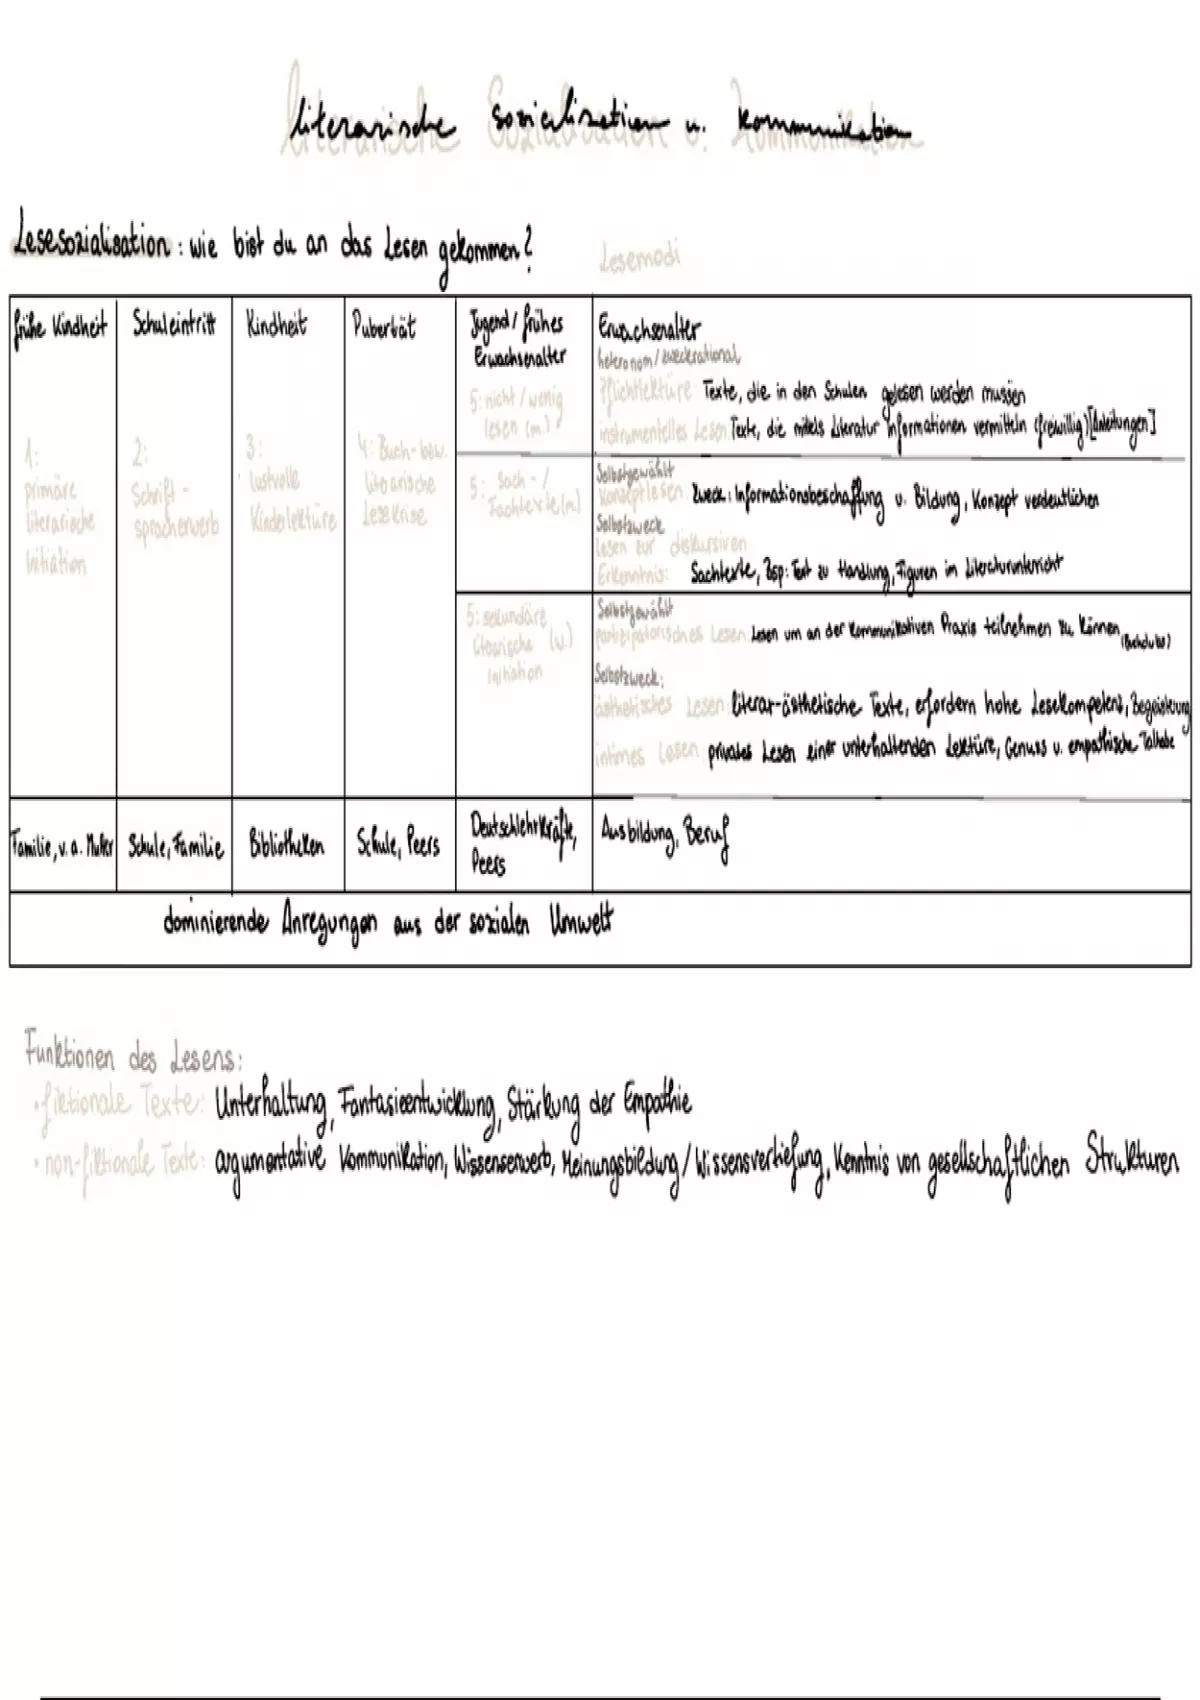 literarische Sozialisation u. Kommunikation
Lesesozialisation: wie bist du an das Lesen gekommen?
Lesemodi
frühe Kindheit
1:
primäre
literarische
Initiation
Schuleintritt
2:
Schrift-
spracherwerb
Kindheit
3:
lustvolle
Kinderlektüre
Pubertät
4: Buch- bzw.
literarische
Lesekrise
Jugend/frühes
Erwachsenalter
5: nicht/wenig
lesen (m.)
5: Sach-/
Fachtexte (m)
5: sekundäre
literarische (w.)
Initiation
Erwachsenalter
heteronom/zweckrational
Pflichtlektüre: Texte, die in den Schulen gelesen werden müssen
instrumentelles Lesen: Texte, die mittels Literatur Informationen vermitteln (freiwillig) [Anleitungen]
Selbstgewählt
Konzeptlesen Zweck: Informationsbeschaffung u. Bildung, Konzept verdeutlichen
Selbstzweck
Lesen zur diskursiven
Erkenntnis: Sachtexte, Bsp: Text zu Handlung, Figuren im Literaturunterricht
Selbstgewählt
partizipatorisches Lesen: Lesen um an der kommunikativen Praxis teilnehmen zu können (Buchclubs)
Selbstzweck:
ästhetisches Lesen: literar-ästhetische Texte, erfordern hohe Lesekompetenz, Begeisterung
intimes Lesen: privates Lesen einer unterhaltenden Lektüre, Genuss u. empathische Teilhabe
Familie, v.a. Mutter
Schule, Familie
Bibliotheken
Schule, Peers
Deutschlehrkräfte,
Peers
Ausbildung, Beruf
dominierende Anregungen aus der sozialen Umwelt
Funktionen des Lesens:
• fiktionale Texte: Unterhaltung, Fantasieentwicklung, Stärkung der Empathie
• non-fiktionale Texte: argumentative Kommunikation, Wissenserwerb, Meinungsbildung/Wissensvertiefung, Kenntnis von gesellschaftlichen Strukturen